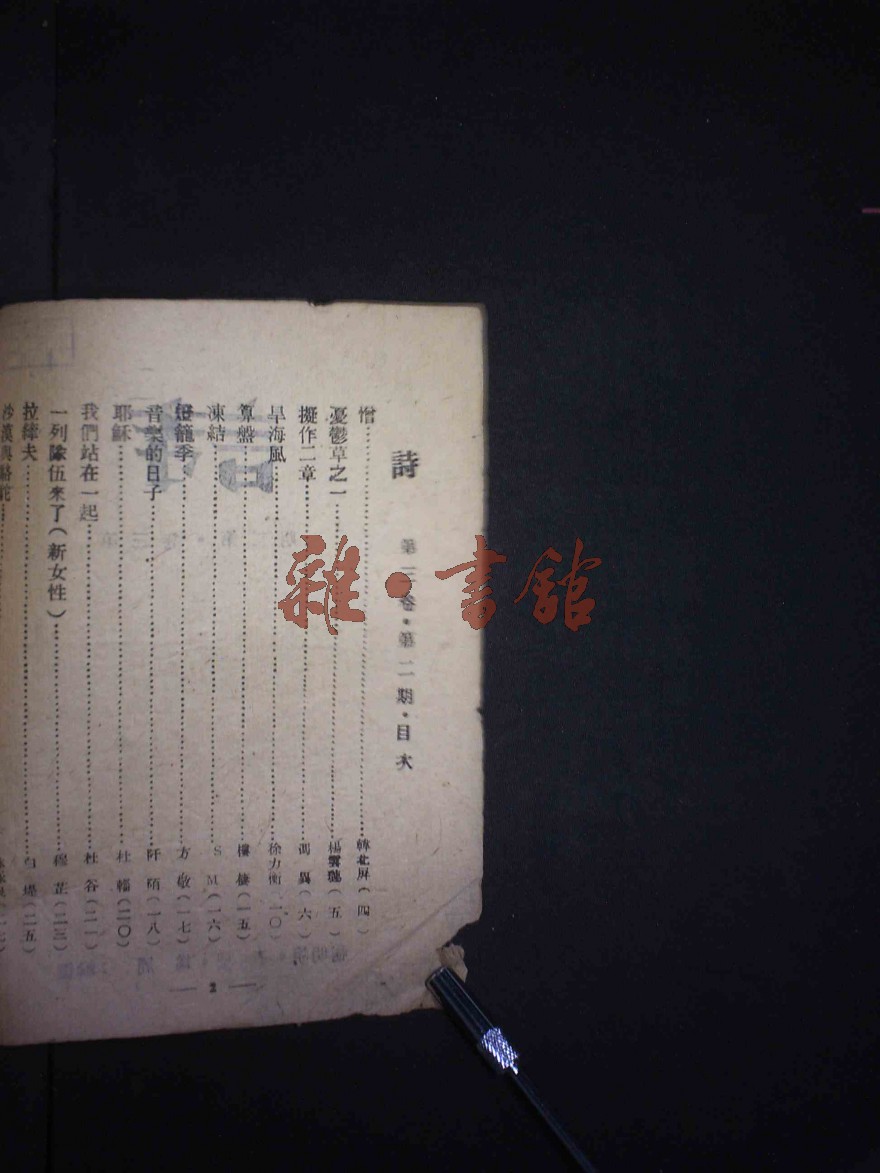 詩 第三卷・第二期・目次
憎……韓北屏(四)
憂鬱草之一……楊雲璉(五)
擬作二章……馮異(六)
旱海風……徐力衡(一〇)
算盤……樓棲(一五)
凍結……S M(一六)
燈籠季……方敬(一七)
音樂的日子……阡陌(一八)
耶穌……杜輻(二〇)
我們站在一起……杜谷(二一)
一列隊伍來了(新女性)……穆芷(二三)
拉縴夫……白堤(二五)
沙漠與駱駝……
— 2 —
雜・書舘